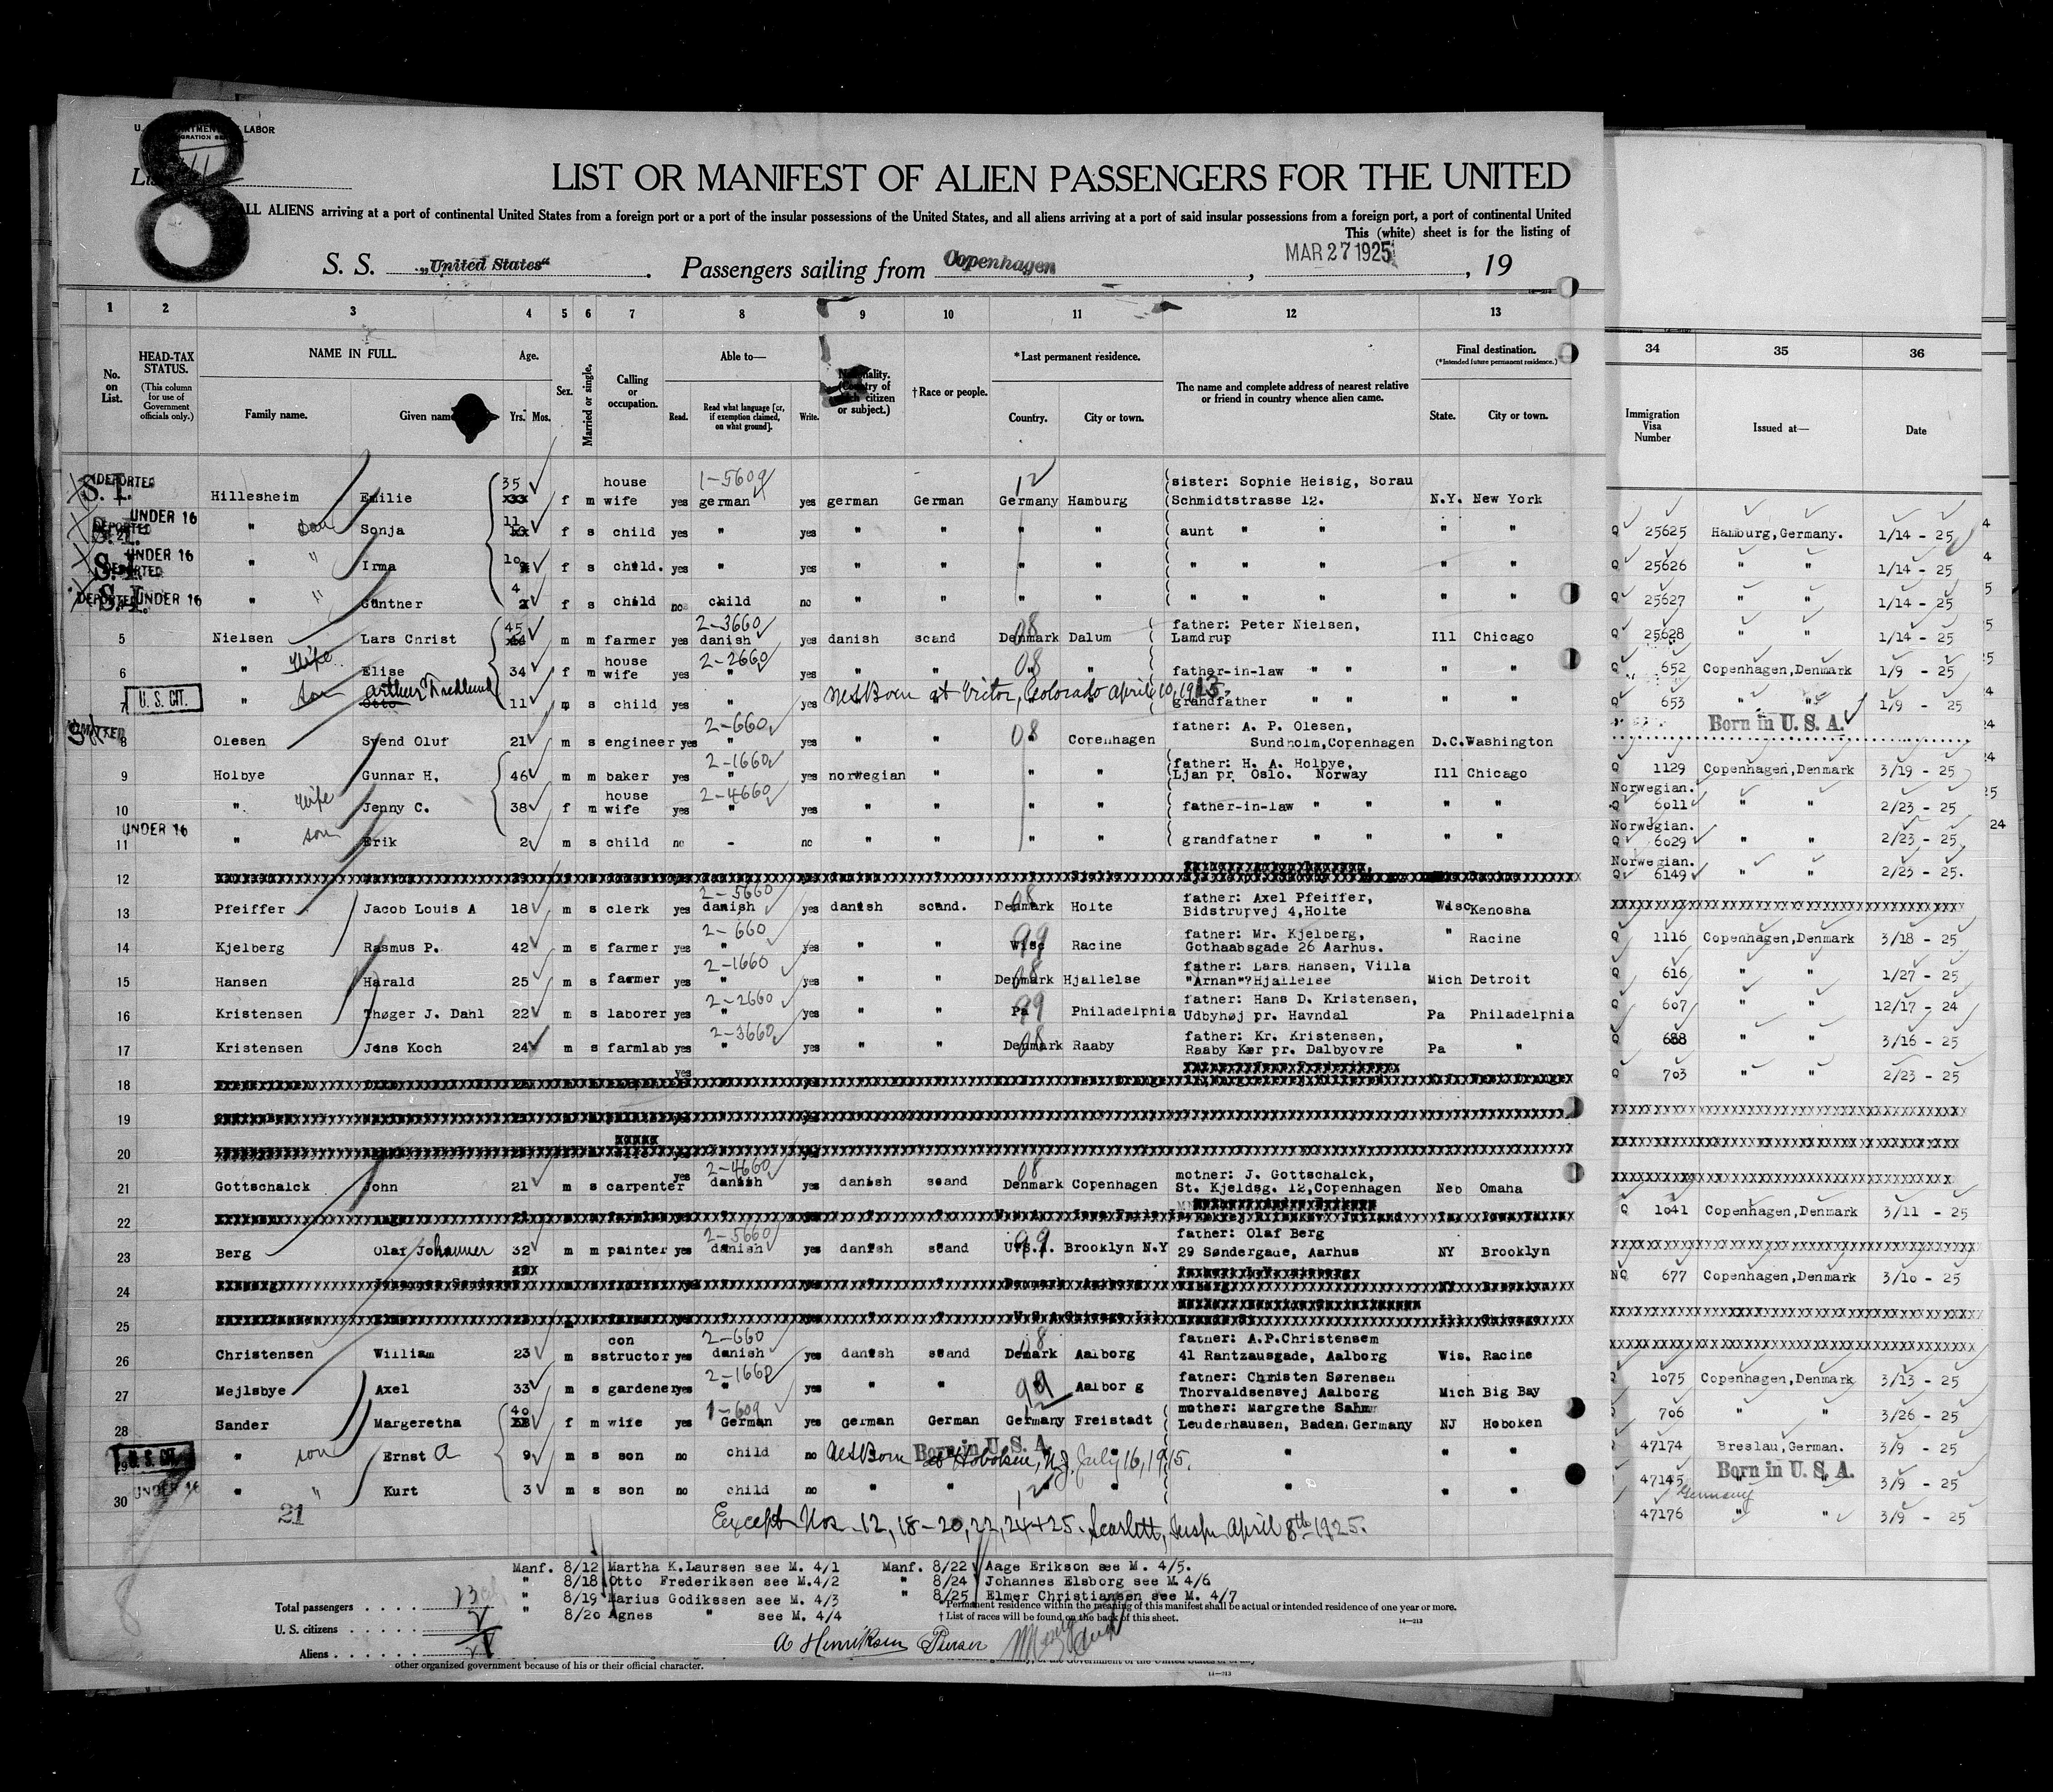 8
LIST OR MANIFEST OF ALIEN PASSENGERS FOR THE UNITED
ALL ALIENS arriving at a port of continental United States from a foreign port or a port of the insular possessions of the United States, and all aliens arriving at a port of said insular possessions from a foreign port, a port of continental United
This (white) sheet is for the listing of
S. S. „United States“ . Passengers sailing from Copenhagen , MAR 27 1925 , 19
1 2 3 4 5 6 7 8 9 10 11 12 13 34 35 36
No. on List. HEAD-TAX STATUS. (This column for use of Government officials only.) NAME IN FULL. Family name. Given name Age. Yrs. Mos. Sex. Married or single. Calling or occupation. Able to— Read. Read what language [or, if exemption claimed, on what ground]. Write. Nationality. (Country of which citizen or subject.) †Race or people. *Last permanent residence. Country. City or town. The name and complete address of nearest relative or friend in country whence alien came. Final destination. (*Intended future permanent residence.) State. City or town. Immigration Visa Number Issued at— Date
DEPORTED S.I. Hillesheim Emilie 35 f m house wife yes 1-5609 german yes german German 12 Germany Hamburg sister: Sophie Heisig, Sorau Schmidtstrasse 12. N.Y. New York
DEPORTED S.I. UNDER 16 " Sonja 11 f s child yes " yes " " " " aunt " " " "
Q 25625 Hamburg, Germany. 1/14 - 25
DEPORTED S.I. UNDER 16 " " Irma 10 f s child. yes " yes " " " " " " " " "
Q 25626 " " 1/14 - 25
DEPORTED S.I. UNDER 16 " " Günther 4 f s child no child no " " " " " " " " "
Q 25627 " " 1/14 - 25
5 Nielsen Lars Christ 45 m m farmer yes 2-3660 danish yes danish scand 08 Denmark Dalum father: Peter Nielsen, Lamdrup Ill Chicago
Q 25628 " " 1/14 - 25
6 " Wife Elise 34 f m house wife yes 2-2660 " yes " " 08 " " father-in-law " " " "
652 Copenhagen,Denmark 1/9 - 25
7 U. S. CIT. " son Arthur Fredlund 11 m s child yes " yes US Born at Victor, Colorado April 10, 1913. grandfather " " " "
653 " " 1/9 - 25
Born in U. S. A.
8 Olesen Svend Oluf 21 m s engineer yes 2-660 " yes " " 08 Copenhagen father: A. P. Olesen, Sundholm,Copenhagen D.C. Washington
9 Holbye Gunnar H. 46 m m baker yes 2-1660 " yes norwegian " " " father: H. A. Holbye, Ljan pr Oslo. Norway Ill Chicago
Q 1129 Copenhagen,Denmark 3/19 - 25
10 " Wife Jenny C. 38 f m house wife yes 2-4660 " yes " " " " father-in-law " " " "
Norwegian. Q 6011 " " 2/23 - 25
11 UNDER 16 " son Erik 2 m s child no - no " " " " grandfather " " " "
Norwegian. Q 6029 " " 2/23 - 25
12
Norwegian. Q 6149 " " 2/23 - 25.
13 Pfeiffer Jacob Louis A 18 m s clerk yes 2-5660 danish yes danish scand. 08 Denmark Holte father: Axel Pfeiffer, Bidstrupvej 4,Holte Wisc Kenosha
14 Kjelberg Rasmus P. 42 m s farmer yes 2-660 " yes " " 99 Wisc Racine father: Mr. Kjelberg, Gothaabsgade 26 Aarhus. " Racine
Q 1116 Copenhagen,Denmark 3/18 - 25
15 Hansen Harald 25 m s farmer yes 2-1660 " yes " " 08 Denmark Hjallelse father: Lars Hansen, Villa "Arnan"?Hjallelse Mich Detroit
Q 616 " " 1/27 - 25
16 Kristensen Thøger J. Dahl 22 m s laborer yes 2-2660 " yes " " 99 Pa Philadelphia father: Hans D. Kristensen, Udbyhøj pr. Havndal Pa Philadelphia
Q 607 " " 12/17 - 24
17 Kristensen Jens Koch 24 m s farmlab yes 2-3660 " yes " " 08 Denmark Raaby father: Kr. Kristensen, Raaby Kær pr. Dalbyovre Pa "
Q 688 " " 3/16 - 25
18 yes
Q 703 " " 2/23 - 25
19
20
21 Gottschalck John 21 m s carpenter yes 2-4660 danish yes danish scand 08 Denmark Copenhagen mother: J. Gottschalck, St. Kjeldsg. 12,Copenhagen Neb Omaha
22
Q 1041 Copenhagen,Denmark 3/11 - 25
23 Berg Olaf Johanner 32 m m painter yes 2-5660 danish yes danish scand 99 U.S.A. Brooklyn N.Y father: Olaf Berg 29 Søndergade, Aarhus NY Brooklyn
24
NQ 677 Copenhagen,Denmark 3/10 - 25
25
26 Christensen William 23 m s constructor yes 2-660 danish yes danish scand 08 Demark Aalborg father: A.P.Christensem 41 Rantzausgade, Aalborg Wis. Racine
27 Mejlsbye Axel 33 m s gardener yes 2-1660 " yes " " 99 Aalbor g father: Christen Sørensen Thorvaldsensvej Aalborg Mich Big Bay
Q 1075 Copenhagen,Denmark 3/13 - 25
28 Sander Margeretha 40 f m wife yes 1-609 German yes german German 12 Germany Freistadt mother: Margrethe Sahm Leuderhausen, Baden Germany NJ Hoboken
706 " " 3/26 - 25
29 U. S. CIT. " son Ernst A 9 m s son no child no US Born Born in U. S. A. at Hoboken, N.J. July 16, 1915. " " "
47174 Breslau,German. 3/9 - 25
30 UNDER 16 " " Kurt 3 m s son no child no " " 12 " " " " "
47145 Born in U. S. A. 3/9 - 25
Germany
47176 " " 3/9 - 25
21
Except Nos 12, 18-20, 22, 24+25. Scarlett, Insp. April 8th 1925.
Manf. 8/12 Martha K.Laursen see M. 4/1 Manf. 8/22 Aage Erikson see M. 4/5.
" 8/18 Otto Frederiksen see M.4/2 " 8/24 Johannes Elsborg see M 4/6
" 8/19 Marius Godikssen see M. 4/3 " 8/25 Elmer Christiansen see M. 4/7
" 8/20 Agnes " see M. 4/4
Total passengers . . . . 23
U. S. citizens . . . . . 2
Aliens . . . . . . 21
*Permanent residence within the meaning of this manifest shall be actual or intended residence of one year or more.
†List of races will be found on the back of this sheet.
14—213
A Henriksen Purser
other organized government because of his or their official character.
14—213